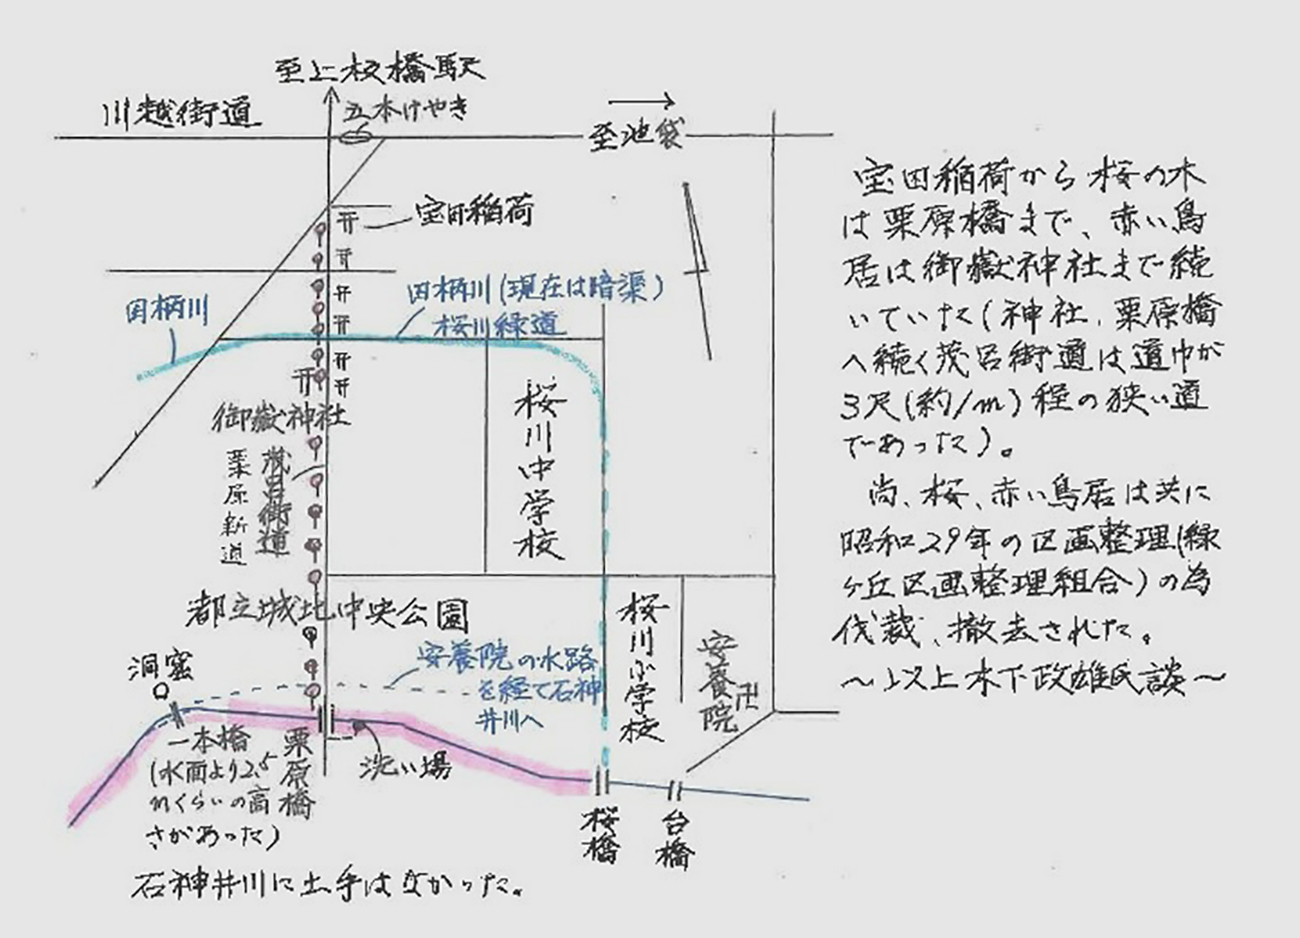 至上板橋駅
川越街道
五本けやき
至池袋
宝田稲荷
田柄川
田柄川(現在は暗渠)
桜川緑道
御嶽神社
茂呂街道
栗原新道
桜川中学校
都立城北中央公園
洞窟
安養院の水路
を経て石神
井川へ
桜川小学校
安養院
卍
一本橋
(水面より2.5
mくらいの高
さがあった)
栗原橋
洗い場
桜橋
台橋
石神井川に土手はなかった。
宝田稲荷から桜の木
は栗原橋まで、赤い鳥
居は御嶽神社まで続
いていた(神社、栗原橋
へ続く茂呂街道は道巾が
3尺(約1m)程の狭い道
であった)。
尚、桜、赤い鳥居は共に
昭和29年の区画整理(緑
ヶ丘区画整理組合)の為
伐裁、撤去された。
〜以上木下政雄氏談〜